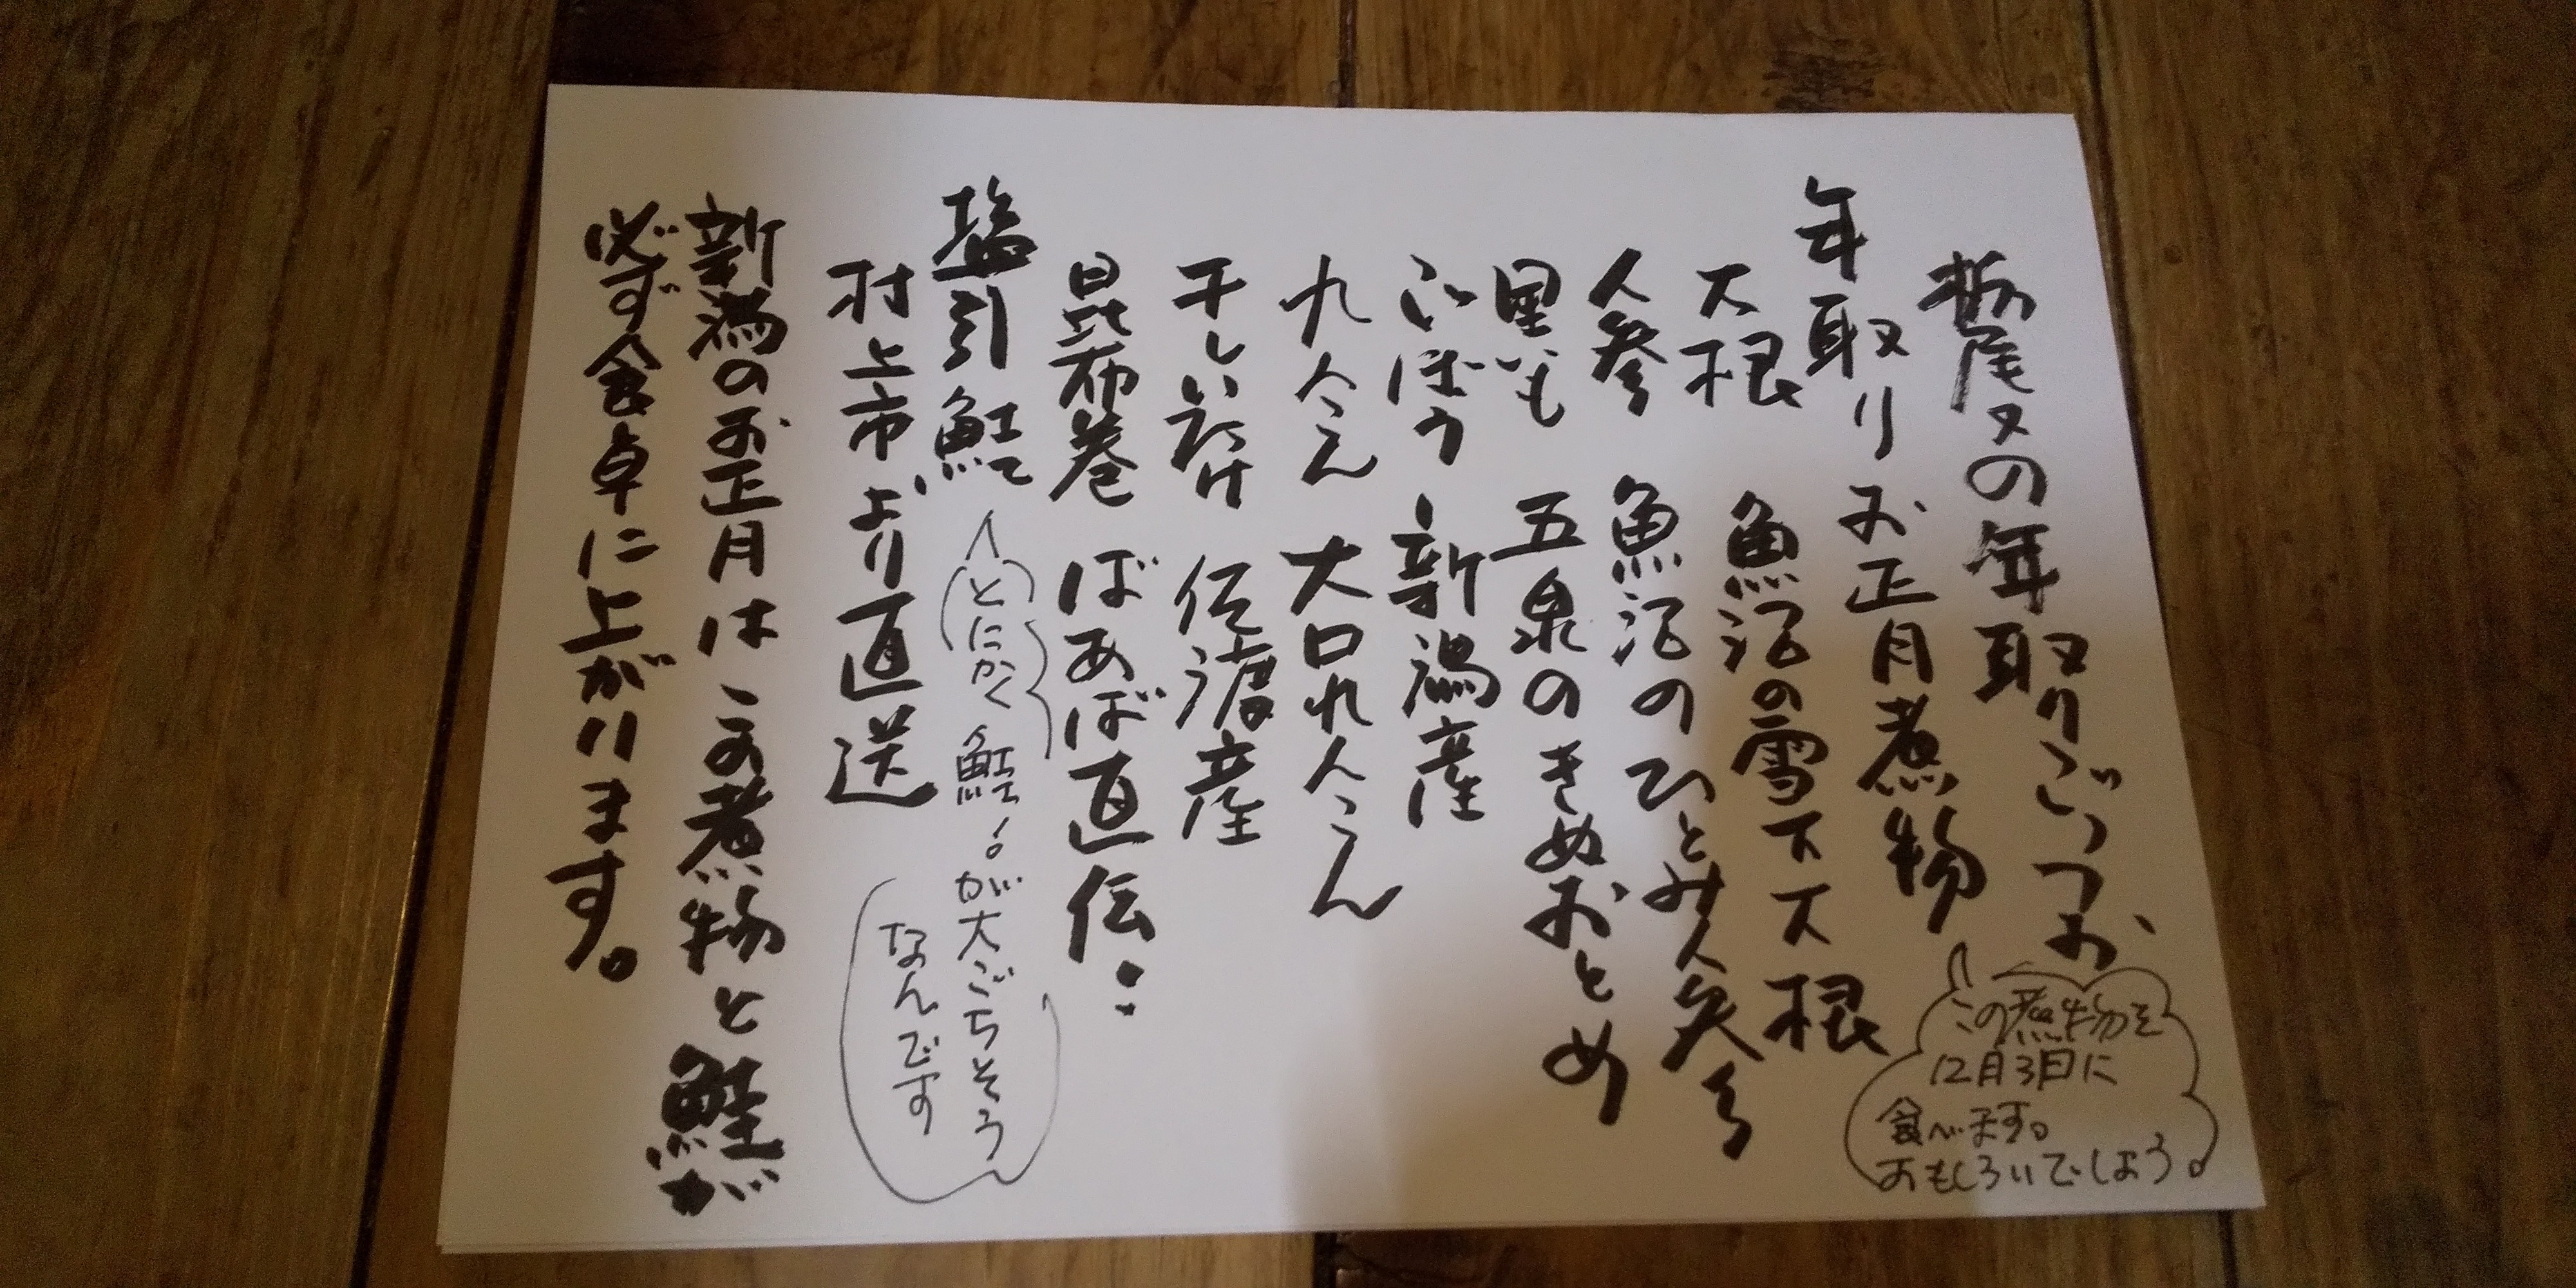 栃尾又の年取りごっつお
年取りお正月煮物
この煮物を
12月31日に
食べます。
おもしろいでしょう。
大根 魚沼の雪下大根
人参 魚沼のひとみ人参
里いも 五泉のきぬおとめ
ごぼう 新潟産
れんこん 大口れんこん
干しいたけ 佐渡産
昆布巻 ばあば直伝:
塩引鮭
とにかく鮭!が大ごちそう
なんです
村上市より直送
新潟のお正月はこの煮物と鮭が
必ず食卓に上がります。